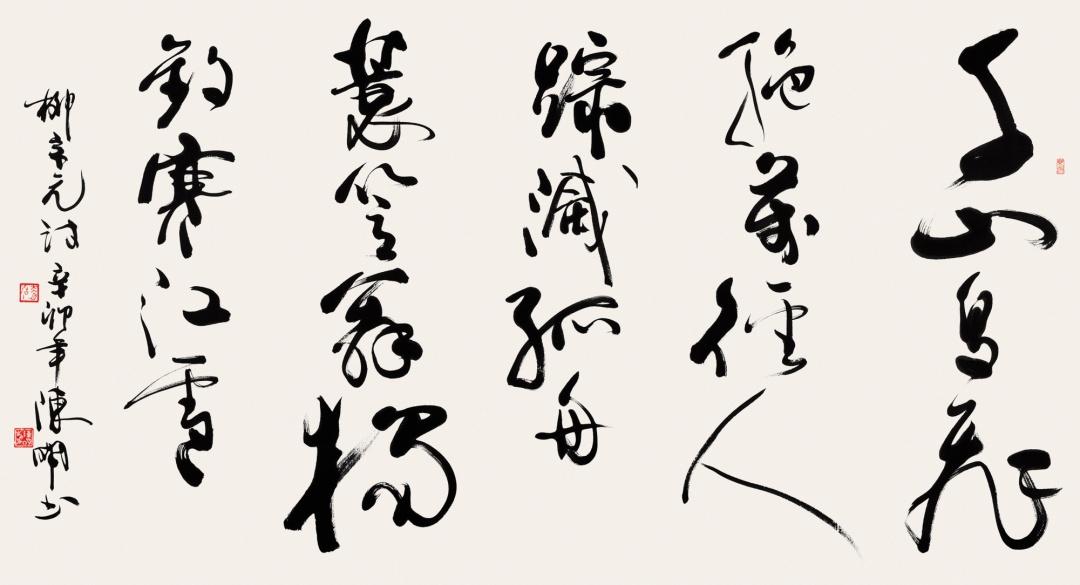 千山鳥飛
絕萬徑人
蹤滅孤舟
蓑笠翁獨
釣寒江雪
柳宗元詩辛卯年陳书